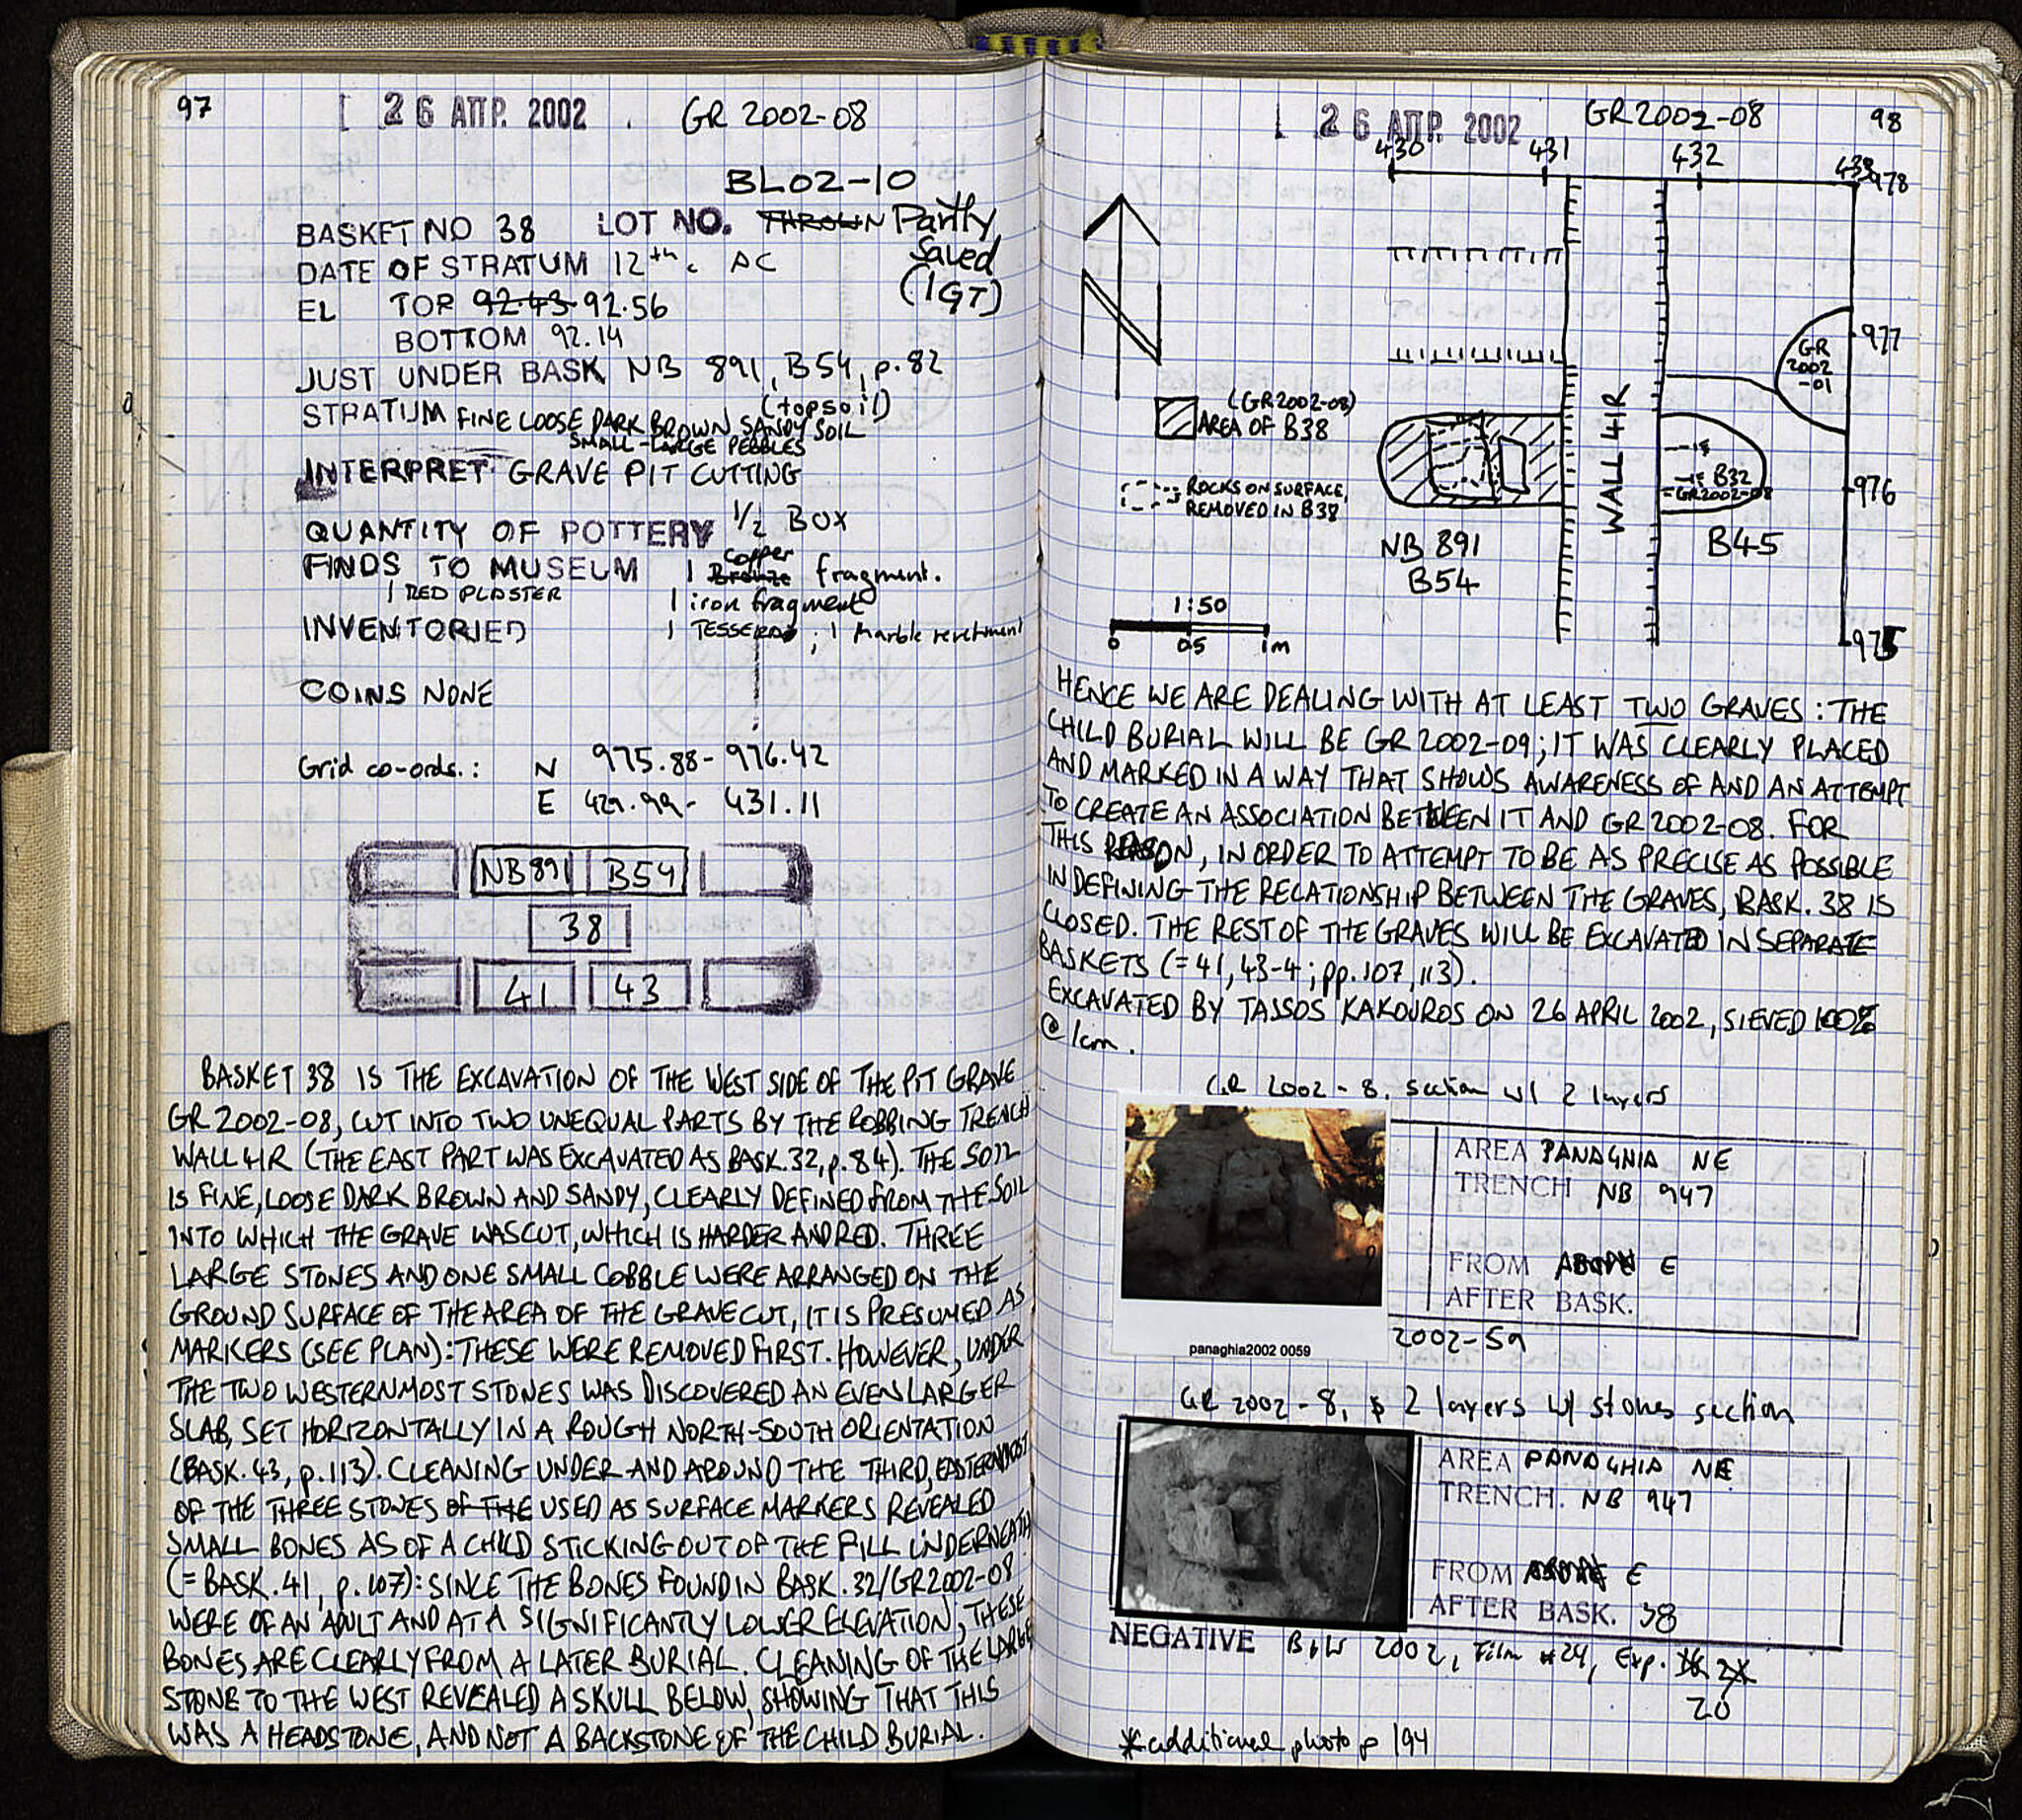 97
26 ΑΠΡ. 2002 . GR 2002-08
BL02-10
BASKET NO 38 LOT NO. THROWN Partly
Saved
(1GT)
DATE OF STRATUM 12th c AC
EL TOP 92.43 92.56
BOTTOM 92.14
JUST UNDER BASK NB 891, B54, p.82
(topsoil)
STRATUM FINE LOOSE DARK BROWN SANDY SOIL
SMALL-LARGE PEBBLES
INTERPRET. GRAVE PIT CUTTING
QUANTITY OF POTTERY 1/2 BOX
FINDS TO MUSEUM 1 Bronze copper fragment.
1 RED PLASTER 1 iron fragment
INVENTORIED 1 TESSERA ; 1 Marble revetment
COINS NONE
Grid co-ords.: N 975.88-976.42
E 429.99- 431.11
NB891 B54
38
41 43
BASKET 38 IS THE EXCAVATION OF THE WEST SIDE OF THE PIT GRAVE
GR 2002-08, CUT INTO TWO UNEQUAL PARTS BY THE ROBBING TRENCH
WALL 41R (THE EAST PART WAS EXCAVATED AS BASK.32, p.84). THE SOIL
IS FINE, LOOSE DARK BROWN AND SANDY, CLEARLY DEFINED FROM THE SOIL
INTO WHICH THE GRAVE WAS CUT, WHICH IS HARDER AND RED. THREE
LARGE STONES AND ONE SMALL COBBLE WERE ARRANGED ON THE
GROUND SURFACE OF THE AREA OF THE GRAVE CUT, IT IS PRESUMED AS
MARKERS (SEE PLAN): THESE WERE REMOVED FIRST. HOWEVER, UNDER
THE TWO WESTERNMOST STONES WAS DISCOVERED AN EVEN LARGER
SLAB, SET HORIZONTALLY IN A ROUGH NORTH-SOUTH ORIENTATION
(BASK.43, p.113). CLEANING UNDER AND AROUND THE THIRD, EASTERNMOST
OF THE THREE STONES OF THE USED AS SURFACE MARKERS REVEALED
SMALL BONES AS OF A CHILD STICKING OUT OF THE FILL UNDERNEATH
(=BASK.41, p.107): SINCE THE BONES FOUND IN BASK.32/GR2002-08
WERE OF AN ADULT AND AT A SIGNIFICANTLY LOWER ELEVATION, THESE
BONES ARE CLEARLY FROM A LATER BURIAL. CLEANING OF THE LARGE
STONE TO THE WEST REVEALED A SKULL BELOW, SHOWING THAT THIS
WAS A HEADSTONE, AND NOT A BACKSTONE OF THE CHILD BURIAL.
26 ΑΠΡ. 2002 GR2002-08 98
430 431 432 433
978
977
GR
2002
-01
(GR2002-08)
AREA OF B38
ROCKS ON SURFACE,
REMOVED IN B38
WALL 41R
B32
=GR2002-08
976
NB 891
B54
B45
1:50
0 0.5 1m
975
HENCE WE ARE DEALING WITH AT LEAST TWO GRAVES: THE
CHILD BURIAL WILL BE GR2002-09; IT WAS CLEARLY PLACED
AND MARKED IN A WAY THAT SHOWS AWARENESS OF AND AN ATTEMPT
TO CREATE AN ASSOCIATION BETWEEN IT AND GR2002-08. FOR
THIS REASON, IN ORDER TO ATTEMPT TO BE AS PRECISE AS POSSIBLE
IN DEFINING THE RELATIONSHIP BETWEEN THE GRAVES, BASK. 38 IS
CLOSED. THE REST OF THE GRAVES WILL BE EXCAVATED IN SEPARATE
BASKETS (=41, 43-4; pp.107, 113).
EXCAVATED BY TASSOS KAKOUROS ON 26 APRIL 2002, SIEVED 100%
@ 1cm.
GR 2002-8, section w/ 2 layers
AREA PANAGHIA NE
TRENCH NB 947
FROM ABOVE E
AFTER BASK.
panaghia2002 0059
2002-59
GR 2002-8, 2 layers w/ stones section
AREA PANAGHIA NE
TRENCH. NB 947
FROM ABOVE E
AFTER BASK. 38
NEGATIVE B+W 2002, Film #24, Exp.
20
*additional photo p 194